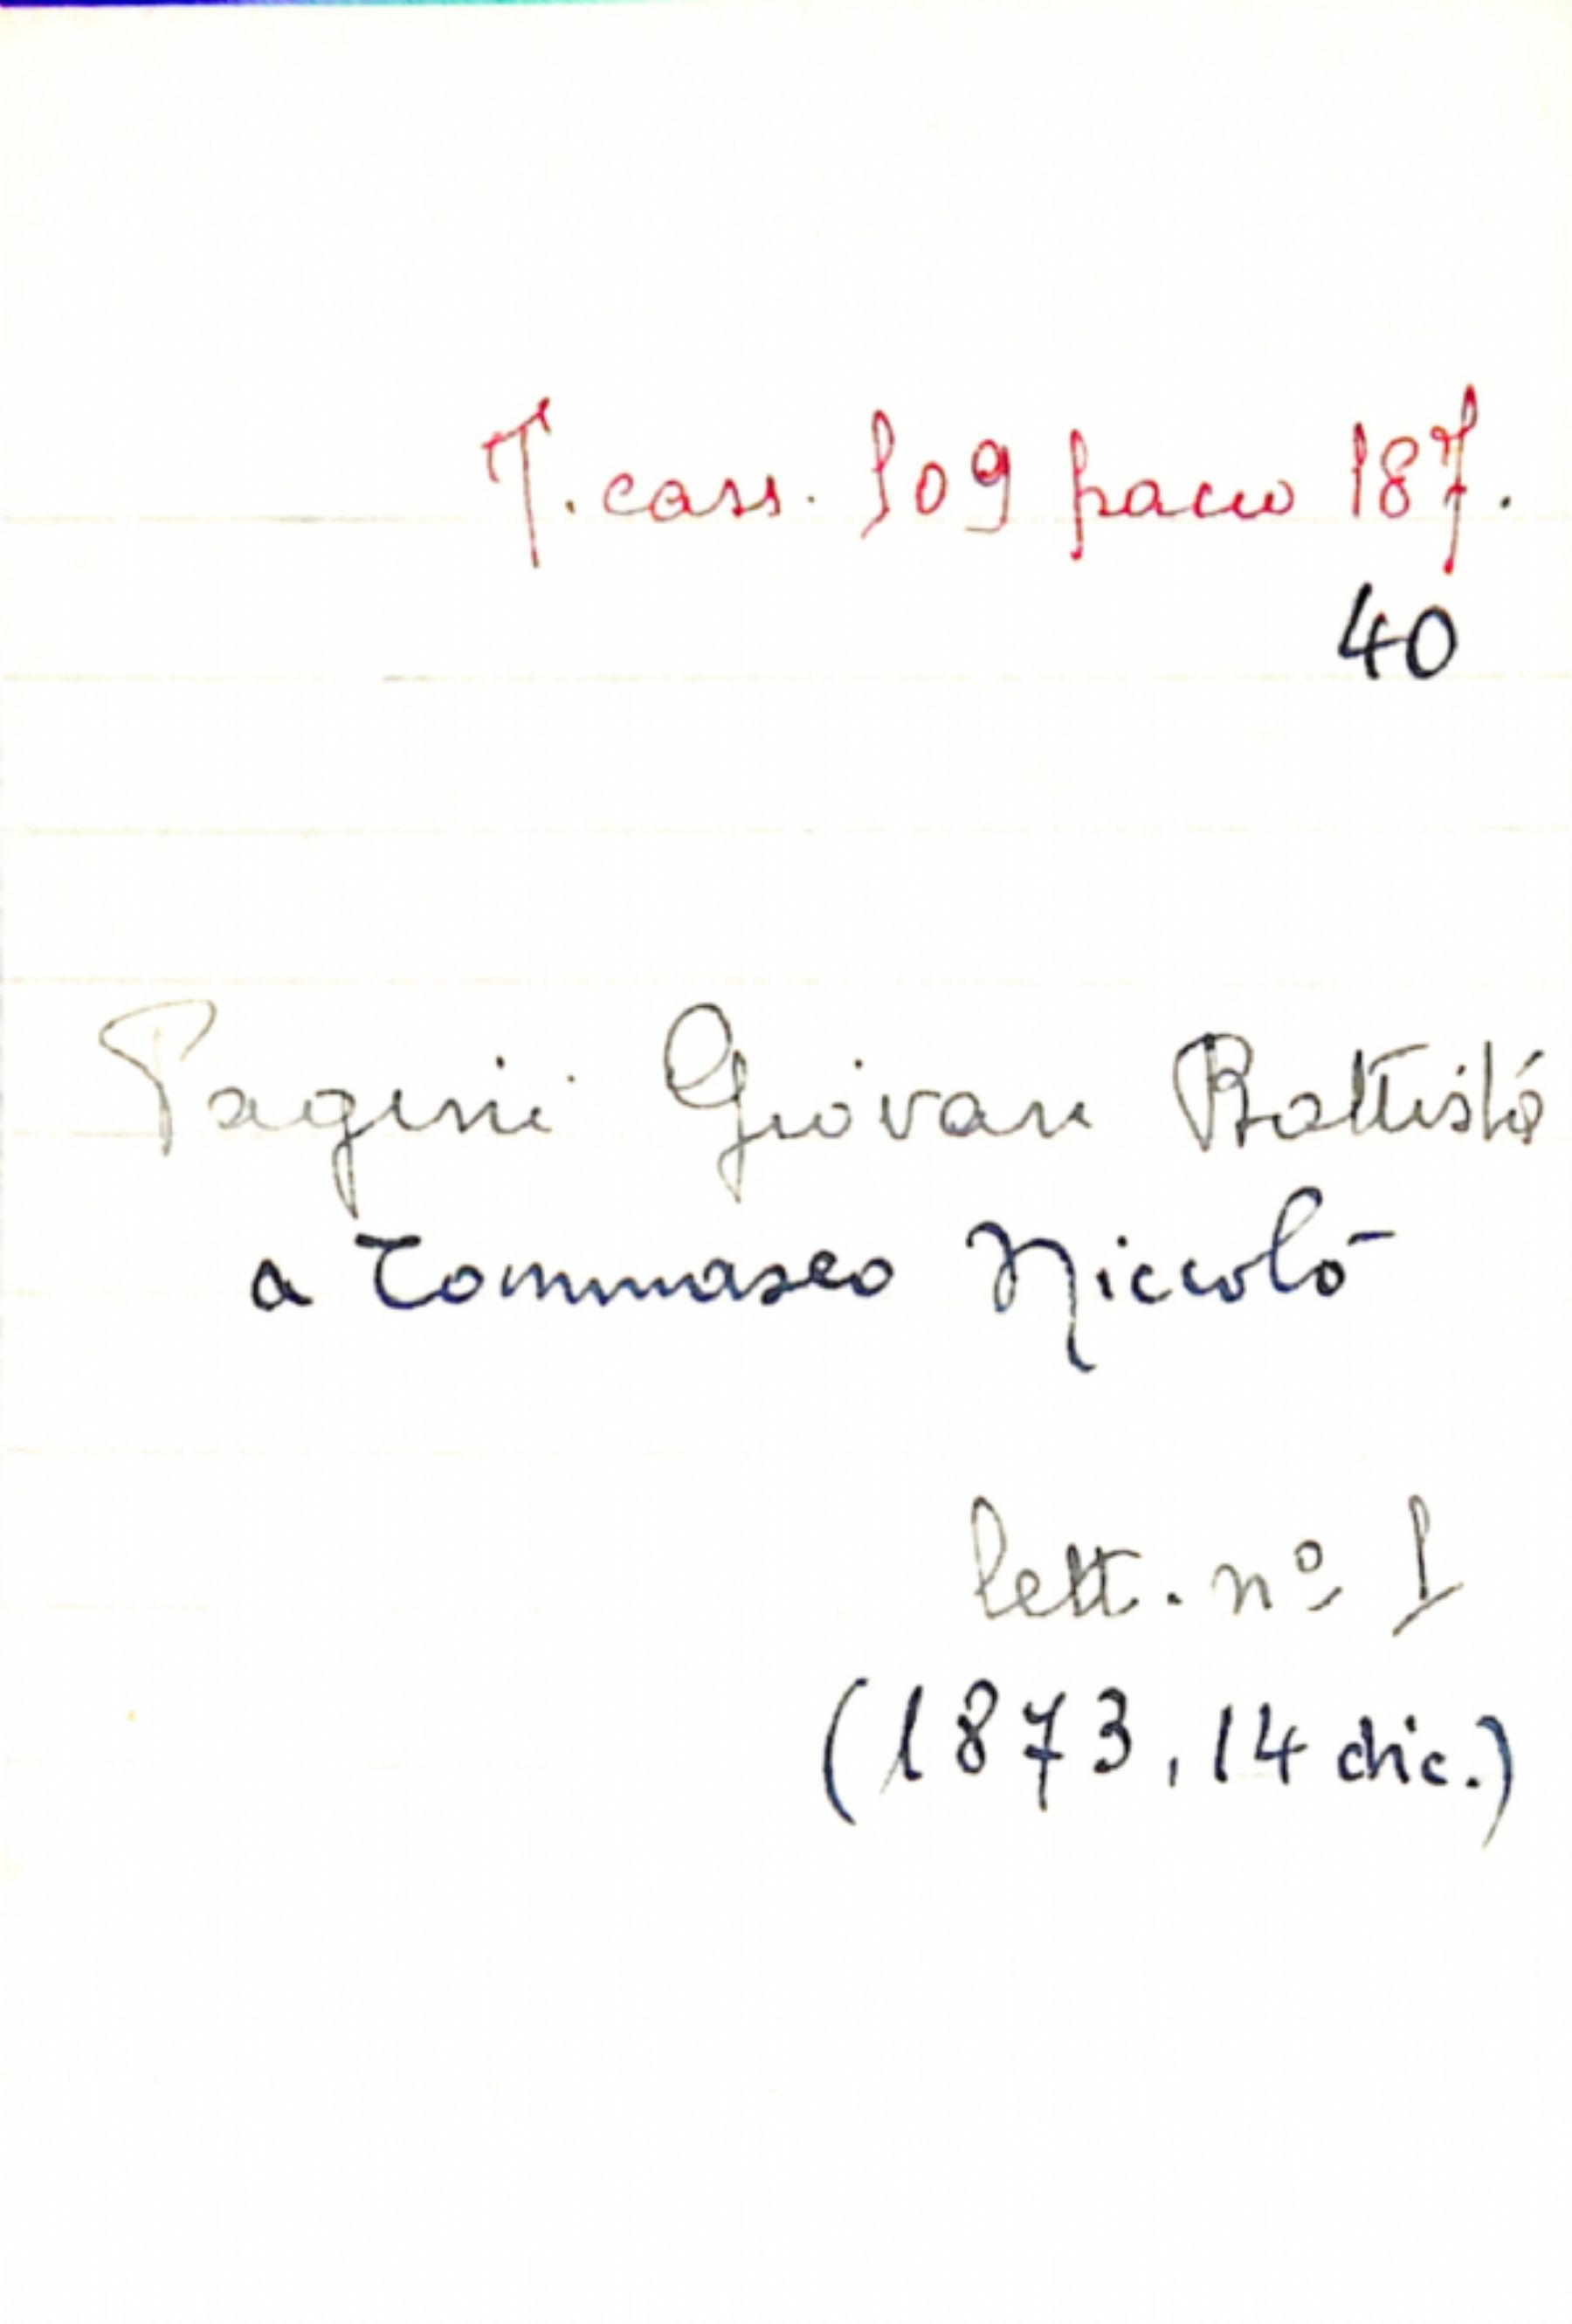 T. cass. 109 pacco 187.
40
Pagini Giovan Battista
a Tommaseo Niccolò
lett. nº 1
(1873, 14 dic.)